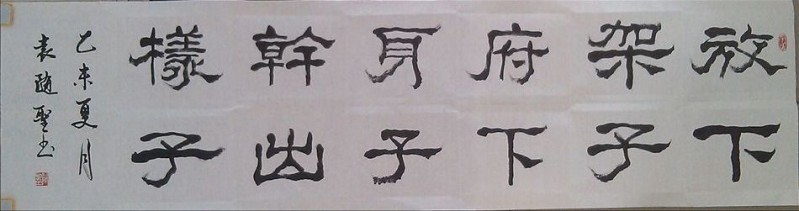 放下
架子
府下
身子
幹出
樣子
乙未夏月
袁隨聖书